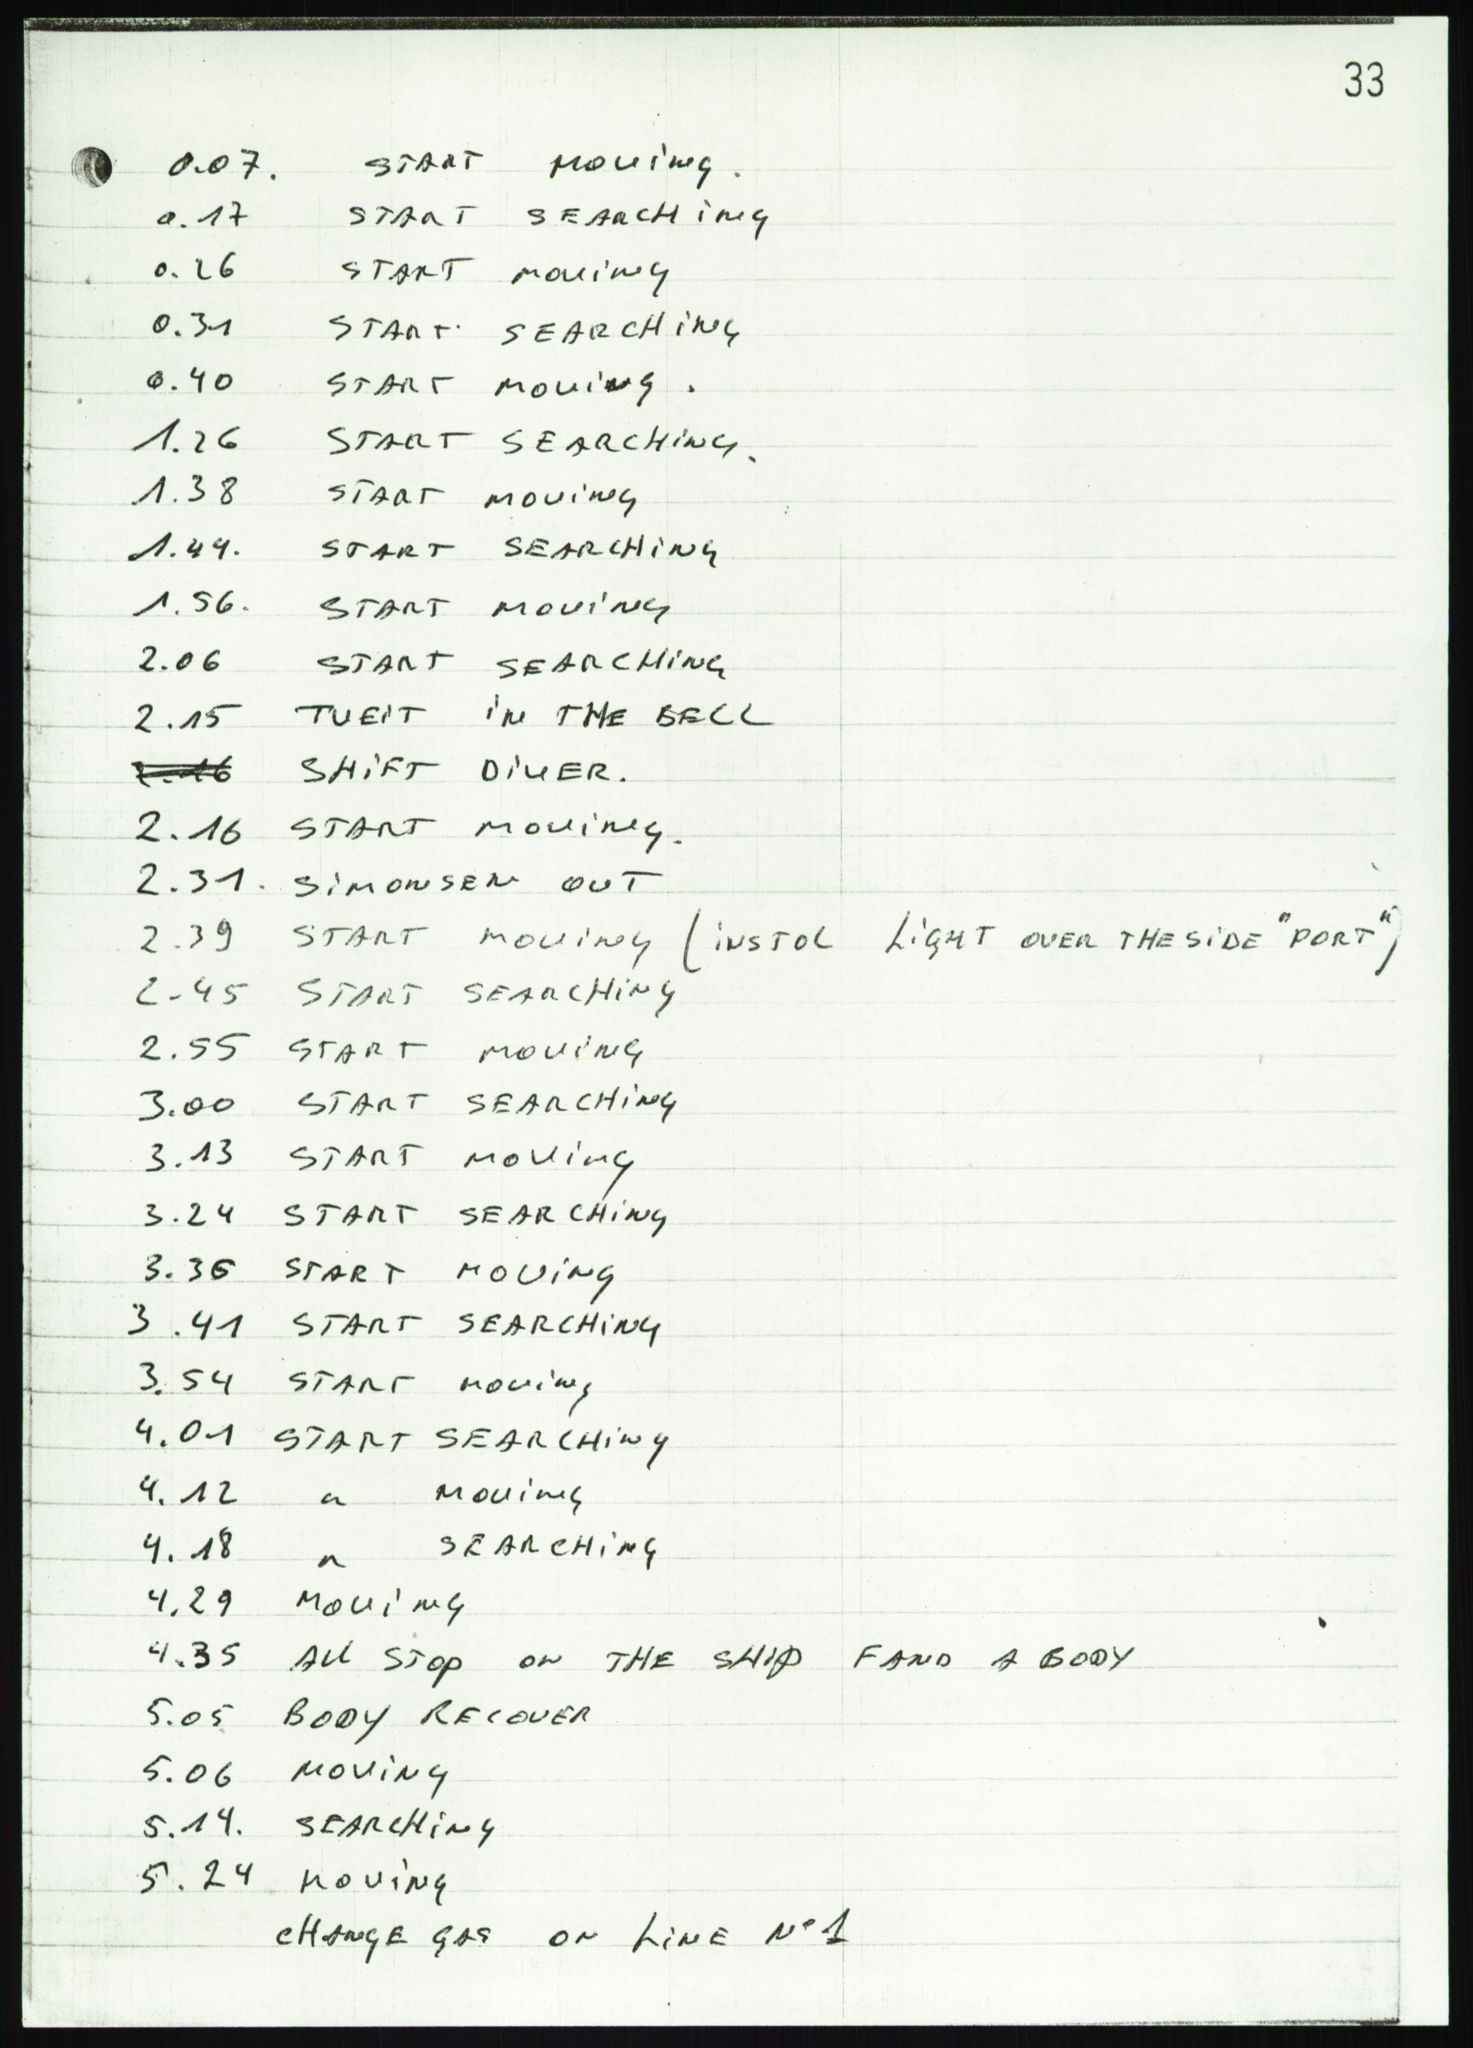 33
0.07. START MOVING.
0.17 START SEARCHING
0.26 START MOVING
0.31 START SEARCHING
0.40 START MOVING.
1.26 START SEARCHING.
1.38 START MOVING
1.44. START SEARCHING
1.56. START MOVING
2.06 START SEARCHING
2.15 TVEIT IN THE BELL
2.16 SHIFT DIVER.
2.16 START MOVING.
2.31. SIMONSEN OUT
2.39 START MOVING (INSTOL LIGHT OVER THE SIDE "PORT")
2.45 START SEARCHING
2.55 START MOVING
3.00 START SEARCHING
3.13 START MOVING
3.24 START SEARCHING
3.36 START MOVING
3.41 START SEARCHING
3.54 START MOVING
4.01 START SEARCHING
4.12 " MOVING
4.18 " SEARCHING
4.29 MOVING
4.35 All STOP ON THE SHIP FAND A BODY
5.05 BODY RECOVER
5.06 MOVING
5.14. SEARCHING
5.24 MOVING
CHANGE GAS ON LINE N°1